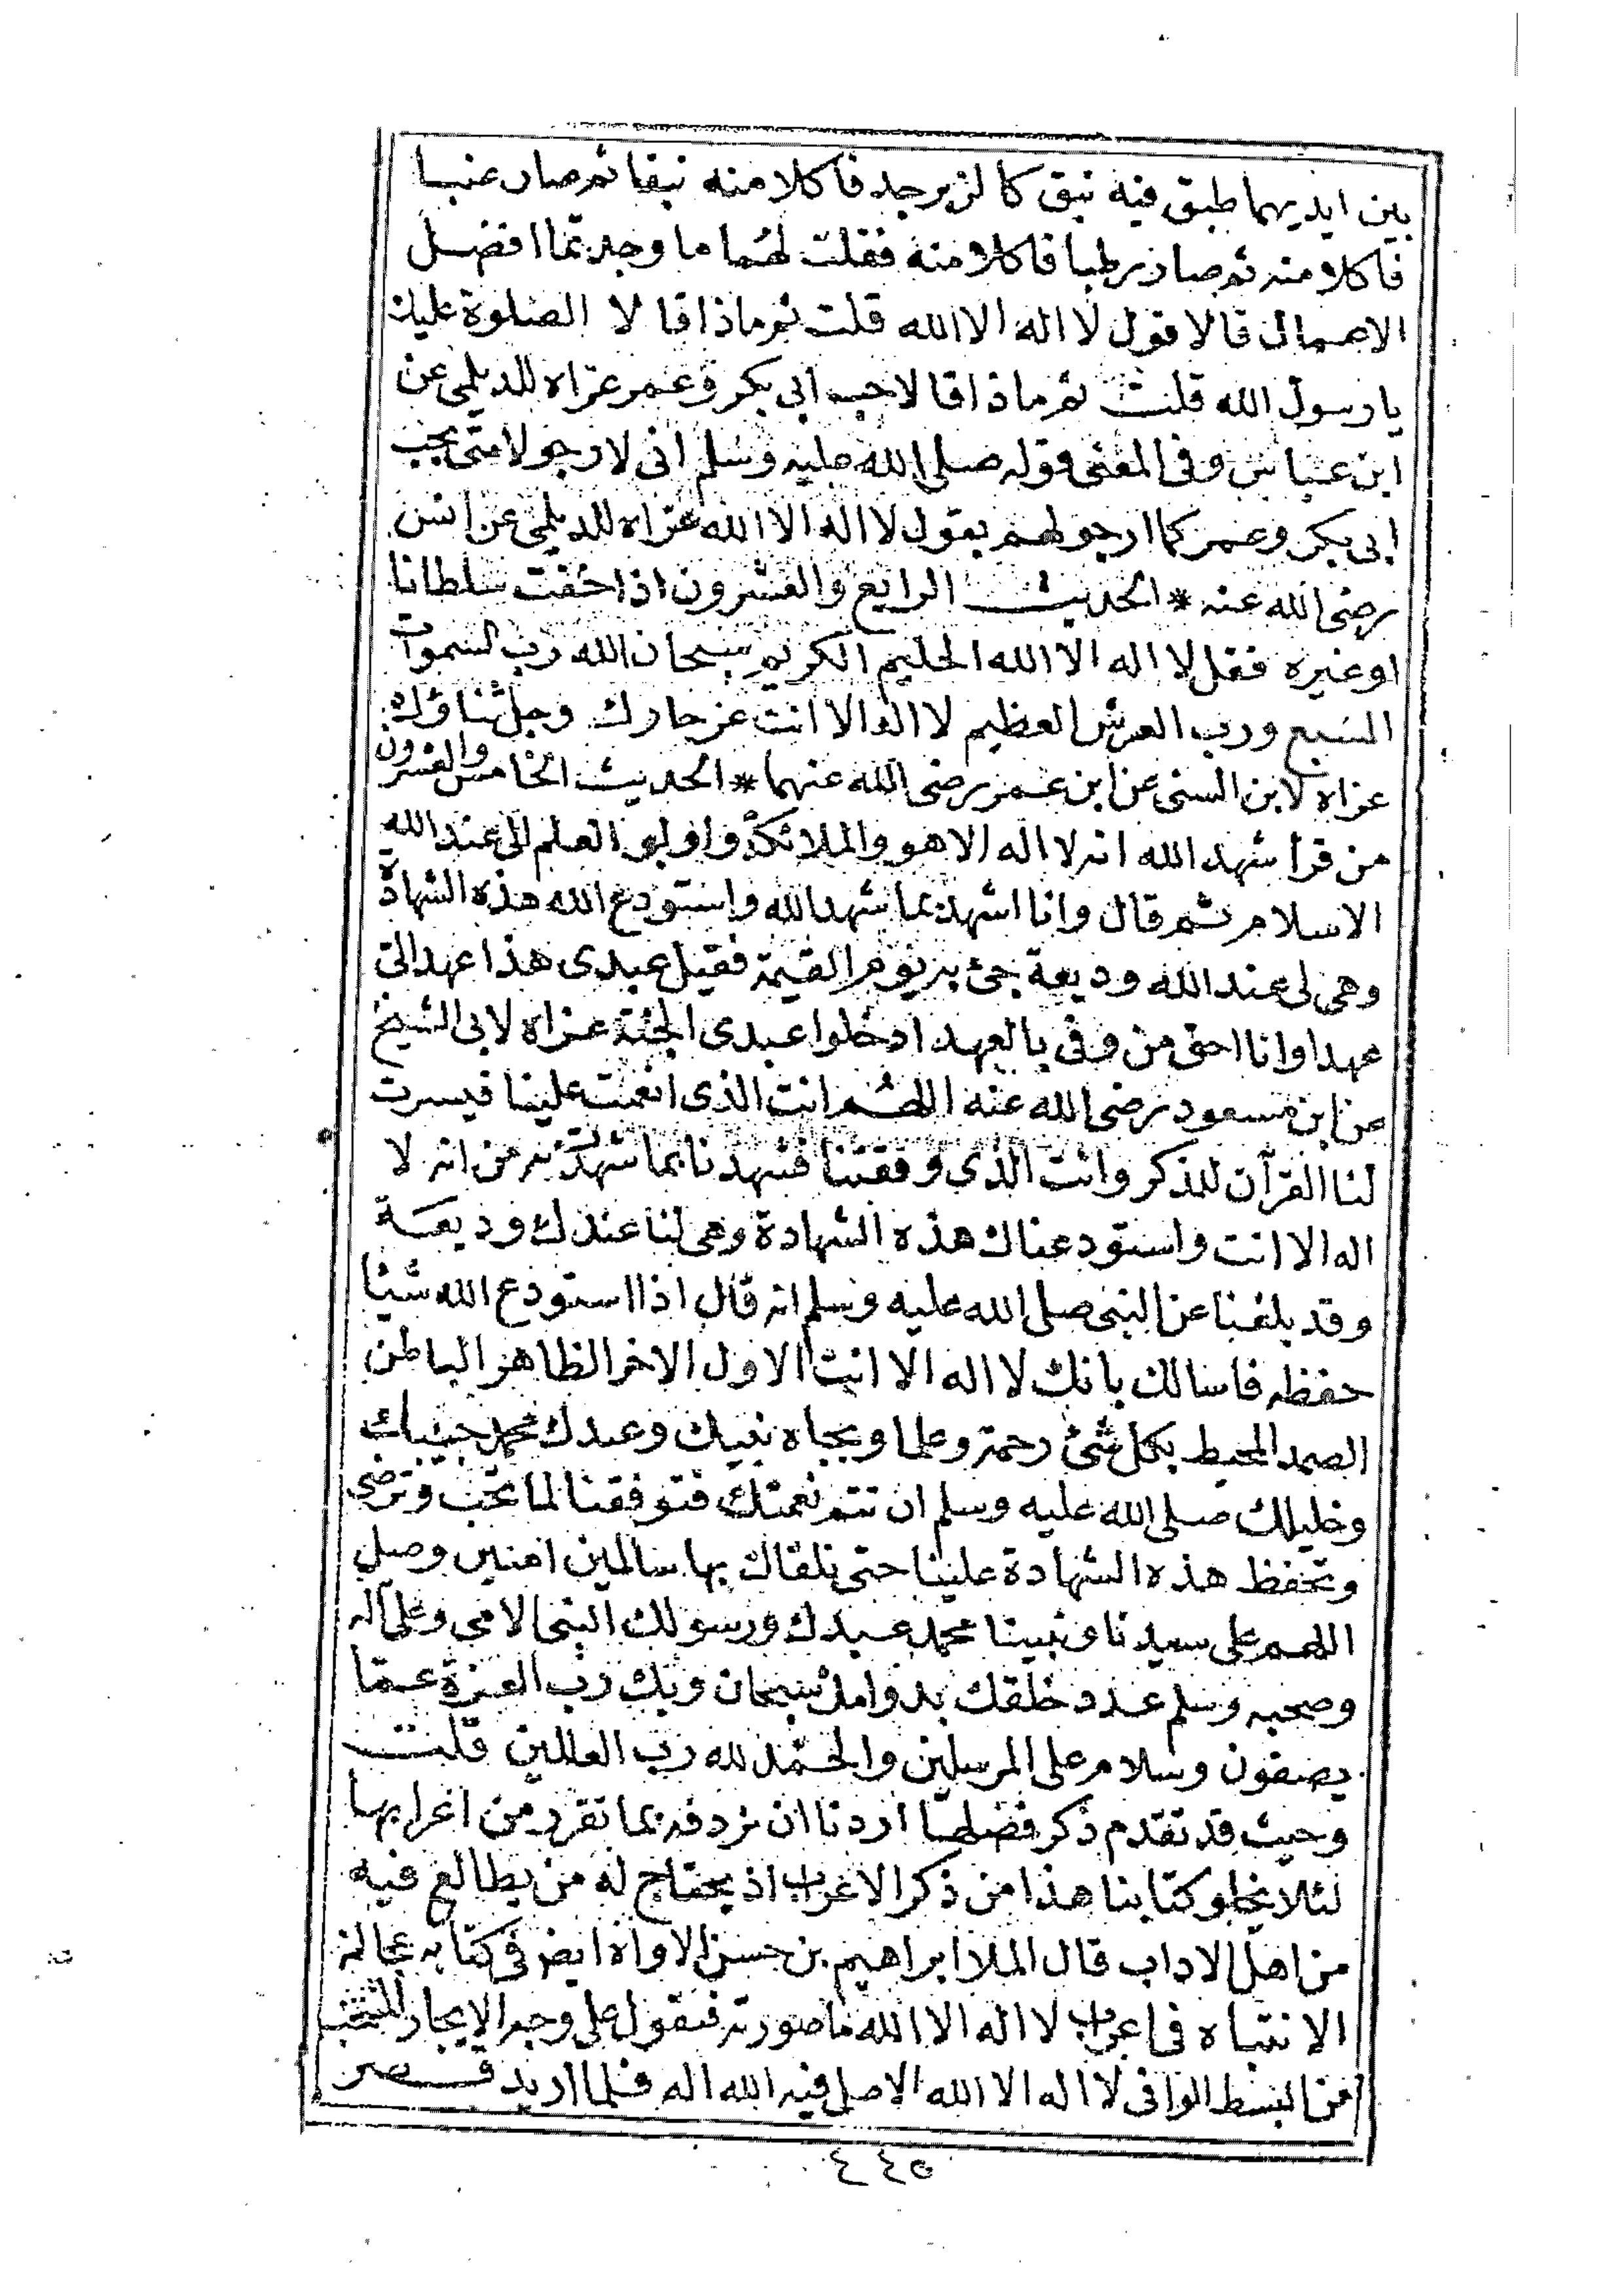 بين ايديهما طبق فيه نبق كالزبرجد فاكلا منه نبقا ثم صار عنبا
فاكلا منه ثم صار رطبا فاكلا منه فقلت لهما ما وجدتما افضل
الاعمال قالا قول لا اله الا الله قلت ثم ماذا قالا الصلوة عليك
يا رسول الله قلت ثم ماذا قالا حب ابى بكر وعمر عزاه للديلمى عن
ابن عباس وفى المعنى قوله صلى الله عليه وسلم انى لارجو لامتى بحب
ابى بكر وعمر كما ارجو لهم بقول لا اله الا الله عزاه للديلمى عن انس
رضى الله عنه * الحديث الرابع والعشرون اذا خفت سلطانا
او غيره فقل لا اله الا الله الحليم الكريم سبحان الله رب السموات
السبع ورب العرش العظيم لا اله الا انت عز جارك وجل ثناؤك
عزاه لابن السنى عن ابن عمر رضى الله عنهما * الحديث الخامس والعشرون
من قرأ شهد الله انه لا اله الا هو والملائكة واولو العلم الى عند الله
الاسلام ثم قال وانا اشهد بما شهد الله واستودع الله هذه الشهادة
وهى لى عند الله وديعة جئ به يوم القيمة فقيل عبدى هذا عهد الىّ
عهدا وانا احق من وفى بالعهد ادخلوا عبدى الجنة عزاه لابى الشيخ
عن ابن مسعود رضى الله عنه اللهم انت الذى انعمت علينا فيسرت
لنا القرآن للذكر وانت الذى وفقتنا فشهدنا بما شهدت به من انه لا
اله الا انت واستودعناك هذه الشهادة وهى لنا عندك وديعة
وقد بلغنا عن النبى صلى الله عليه وسلم انه قال اذا استودع الله شيئا
حفظه فاسالك بانك لا اله الا انت الاول الاخر الظاهر الباطن
الصمد المحيط بكل شئ رحمة وعلما وبجاه نبيك وعبدك محمد حبيبك
وخليلك صلى الله عليه وسلم ان تتم نعمتك فتوفقنا لما تحب وترضى
وتحفظ هذه الشهادة علينا حتى نلقاك بها سالمين امنين وصل
اللهم على سيدنا ونبينا محمد عبدك ورسولك النبى الامى وعلى آله
وصحبه وسلم عدد خلقك بدوامك سبحان ربك رب العزة عما
يصفون وسلام على المرسلين والحمد لله رب العالمين قلت
وحيث قد تقدم ذكر فضلها اردنا ان نردفه بما تقرر من اعرابها
لئلا يخلو كتابنا هذا من ذكر الاعراب اذ يحتاج له من يطالع فيه
من اهل الاداب قال الملا ابراهيم بن حسن ايض فى كتابه عجالة
الانتباه فى اعراب لا اله الا الله ما صورته فنقول على وجه الايجاز المنتخب
من البسط الوافى لا اله الا الله الاصل فيه الله اله فلما اريد قصر
٤٤٥